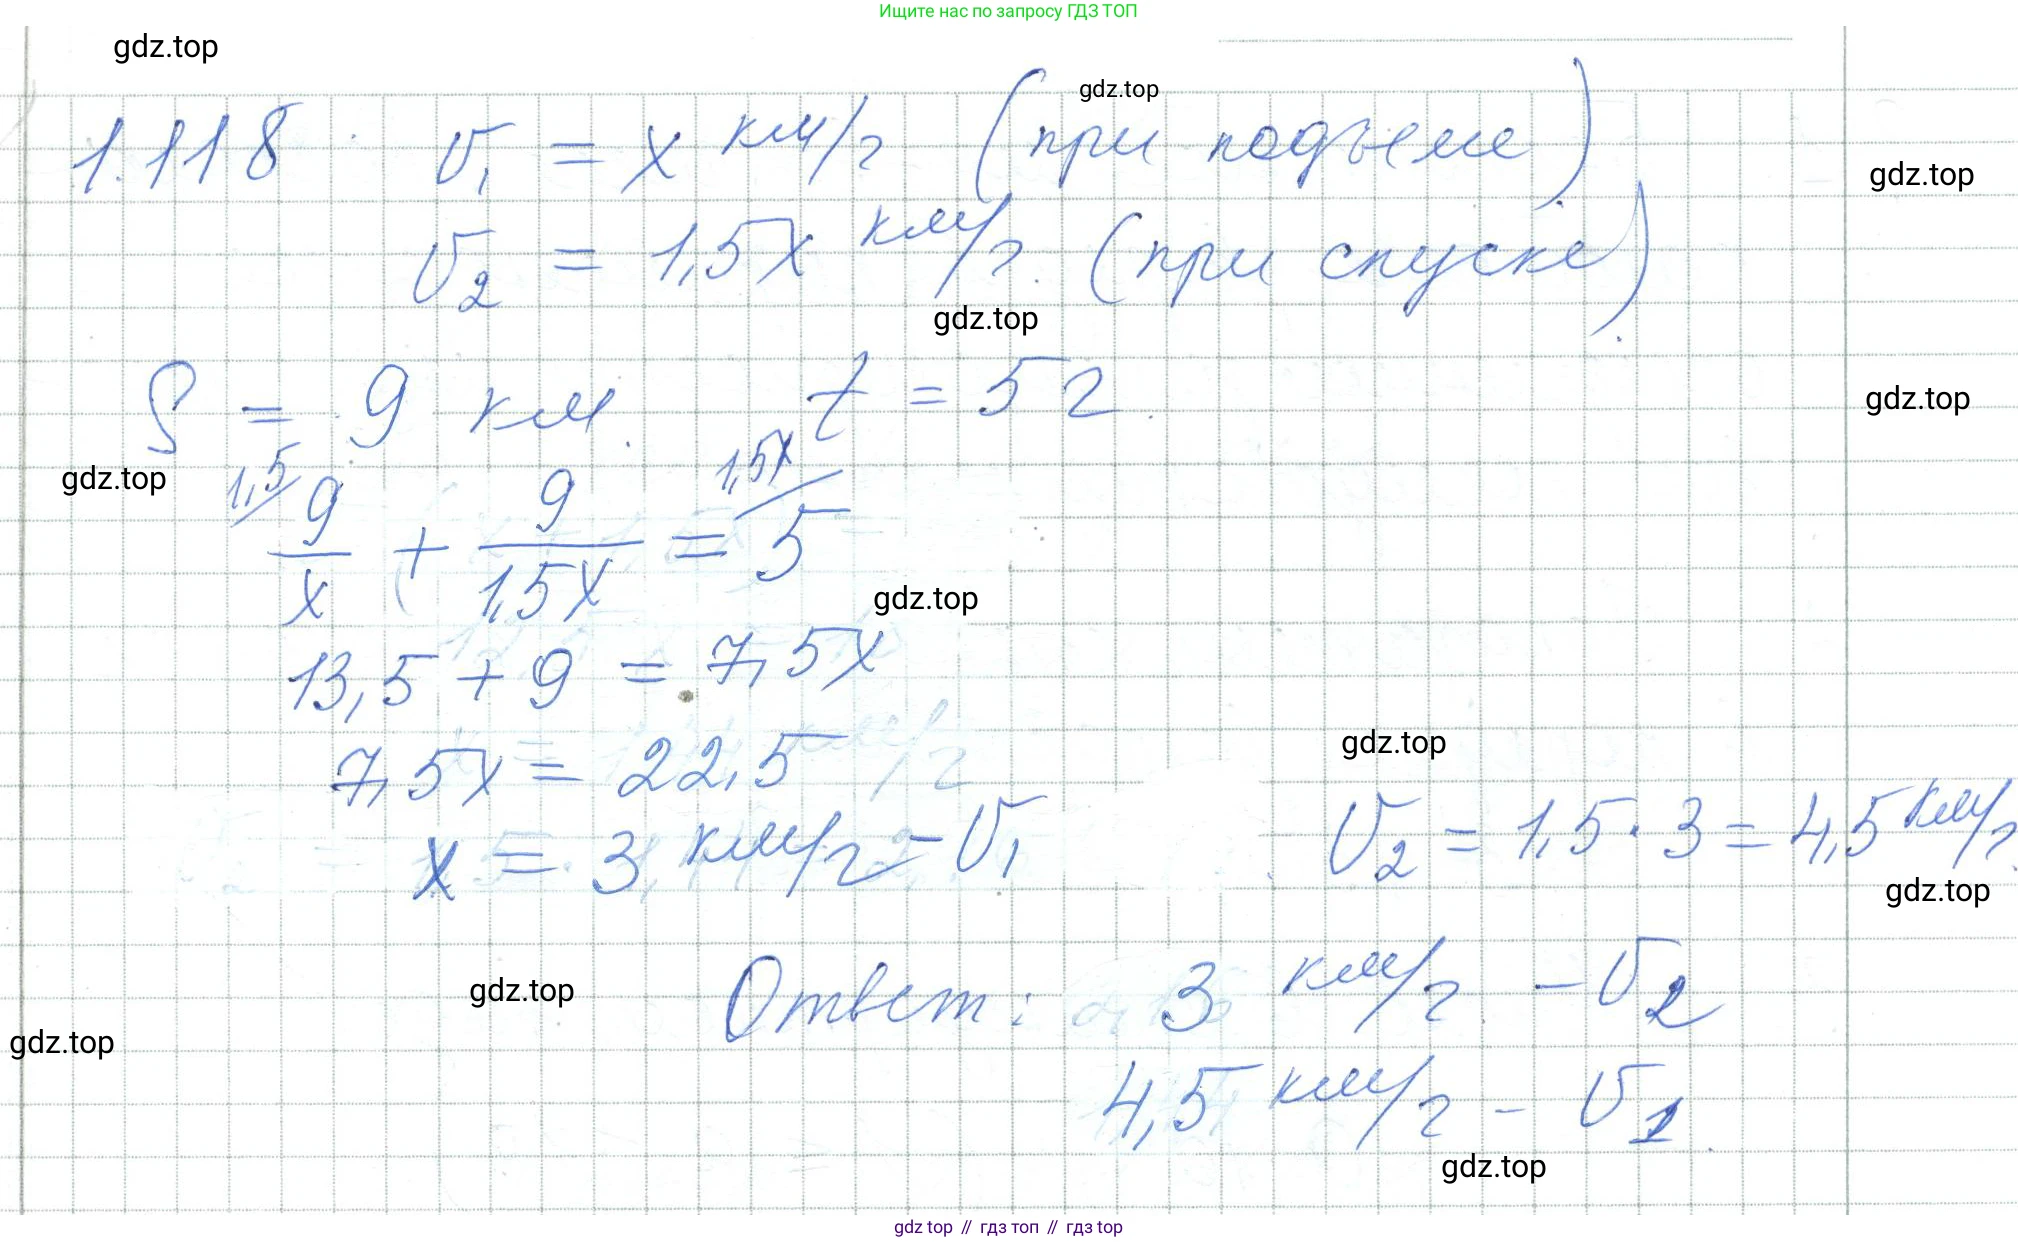 Ищите нас по запросу ГДЗ ТОП
gdz.top
gdz.top
1.118 v₁ = x км/г (при подъеме)
gdz.top
v₂ = 1,5x км/г. (при спуске)
gdz.top
S = 9 км. t = 5 г.
gdz.top
gdz.top
9/x (1,5 + 9/1,5x = 5 (1,5x
gdz.top
13,5 + 9 = 7,5x
7,5x = 22,5
gdz.top
x = 3 км/г – v₁ v₂ = 1,5 · 3 = 4,5 км/г.
gdz.top
Ответ: 3 км/г – v₂
gdz.top
gdz.top
4,5 км/г – v₁.
gdz.top
gdz top // гдз топ // гдз top